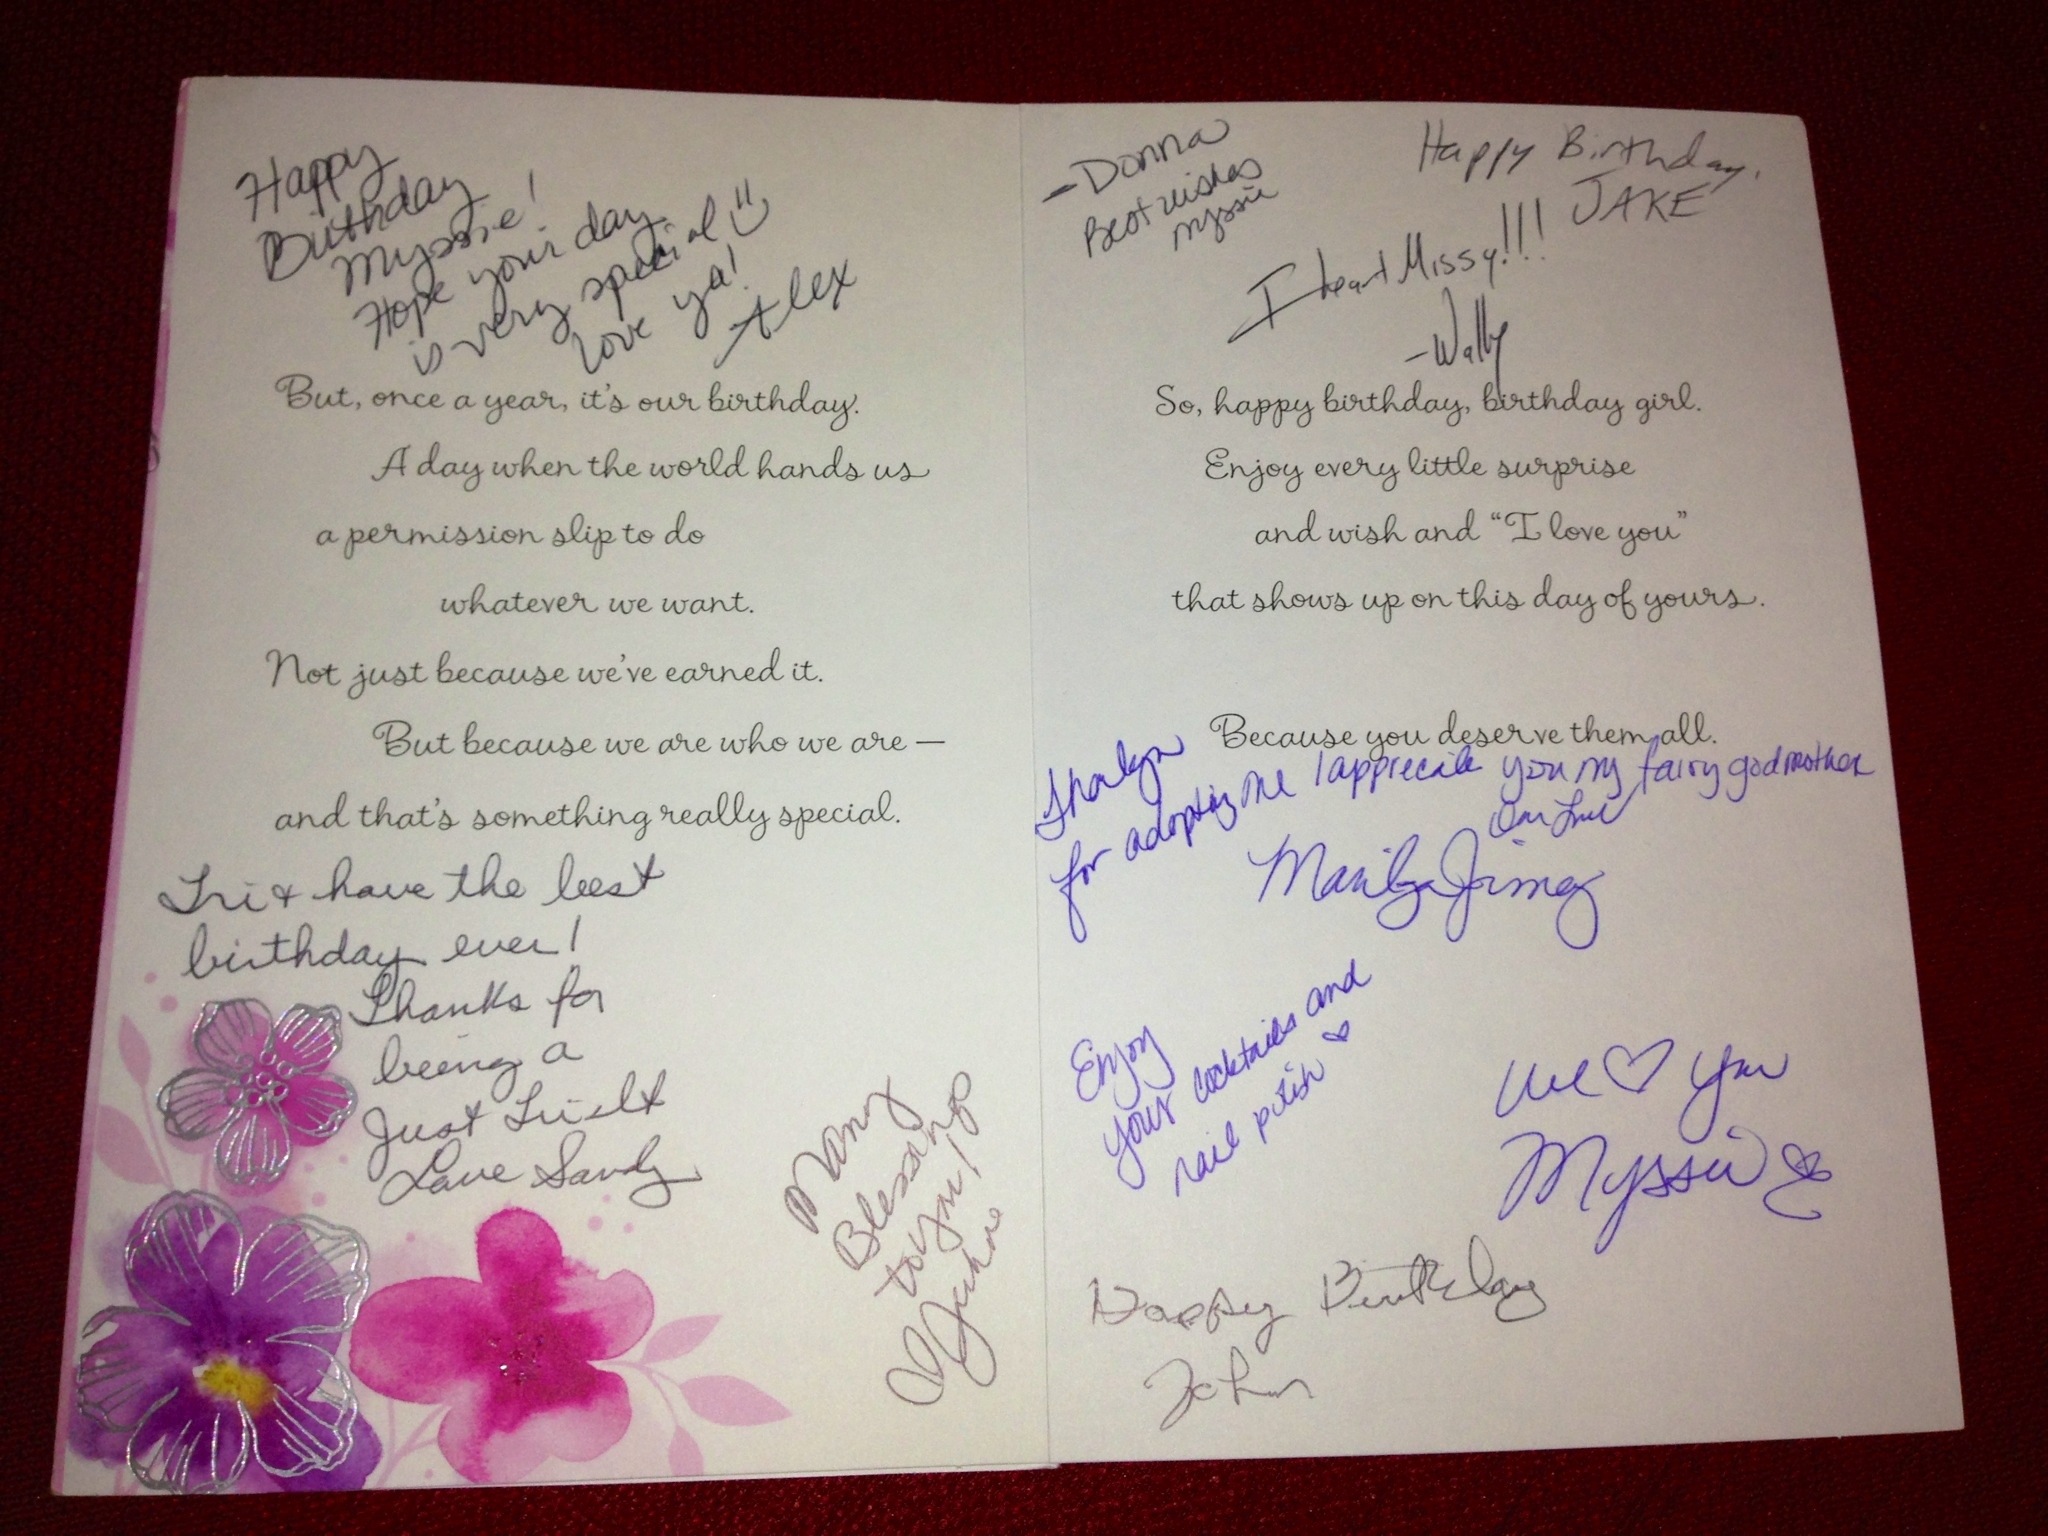 Happy
Birthday
Myssie!
Hope your day
is very special
love ya!
-Alex
But, once a year, it's our birthday.
A day when the world hands us
a permission slip to do
whatever we want.
Not just because we've earned it.
But because we are who we are —
and that's something really special.
have the best
birthday ever!
Thanks for
being a
Just
Love Sandy
Many
Blessings
to you!
-Donna
Best wishes
Myssie
Happy Birthday,
JAKE
I heart Missy!!!
-Wally
So, happy birthday, birthday girl.
Enjoy every little surprise
and wish and "I love you"
that shows up on this day of yours.
Because you deserve them all.
for adopting me I appreciate you my fairy godmother
Enjoy
your cocktails and
nail polish ♡
We ♡ you
Myssie
Happy Birthday
John